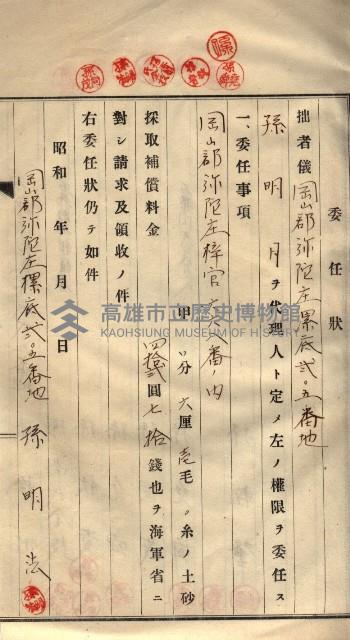 委任狀
拙者儀岡山郡弥陀庄累底弐〇五番地
孫明月ヲ代理人ト定メ左ノ權限ヲ委任ス
一、委任事項
岡山郡弥陀庄梓官六八番ノ内
甲 〇分六厘壱毛〇糸ノ土砂
採取補償料金 四拾弐圓七拾錢也ヲ海軍省ニ
對シ請求及領收ノ件
右委任狀仍テ如件
昭和 年 月 日
岡山郡弥陀庄累底弐〇五番地 孫明法
高雄市立歷史博物館
KAOHSIUNG MUSEUM OF HISTORY